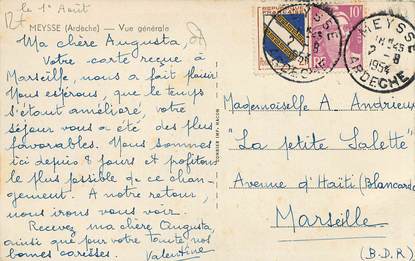 le 1er Août
MEYSSE (Ardèche) — Vue générale
Ma chère Augusta,
Votre carte reçue à
Marseille, nous a fait plaisir
Nous espérons, que le temps
s'étant amélioré, votre
séjour vous a été des plus
favorables. Nous sommes
ici depuis 8 jours et profitons
le plus possible de ce chan-
gement. A notre retour,
nous irons vous voir.
Recevez ma chère Augusta,
ainsi que pour votre Tante nos
bonnes caresses. Valentine
MEYSSE
18H45
2 - 8
1954
ARDECHE
10F
RF
Mademoiselle A. Andrieu
"La petite Salette"
Avenue d'Haïti (Blancarde
Marseille
(B.D.R)